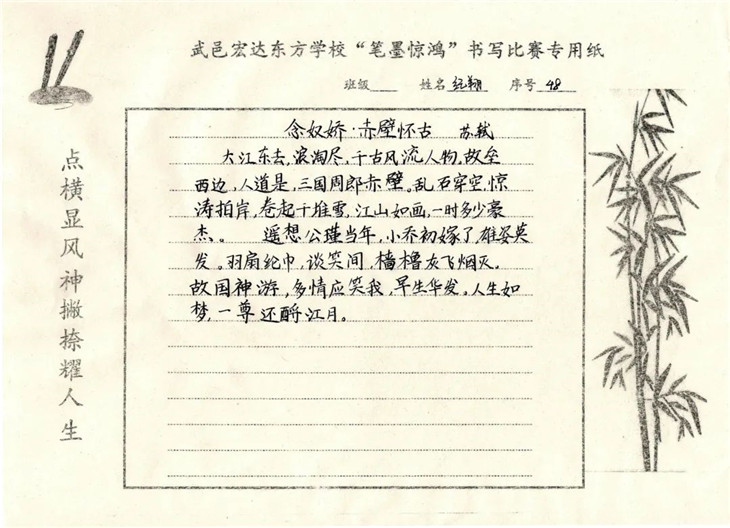 武邑宏达东方学校“笔墨惊鸿”书写比赛专用纸
班级 姓名 纪翔 序号 48
点横显风神撇捺耀人生
念奴娇·赤壁怀古 苏轼
大江东去,浪淘尽,千古风流人物,故垒
西边,人道是,三国周郎赤壁,乱石穿空,惊
涛拍岸,卷起千堆雪,江山如画,一时多少豪
杰。 遥想公瑾当年,小乔初嫁了,雄姿英
发。羽扇纶巾,谈笑间,樯橹灰飞烟灭。
故国神游,多情应笑我,早生华发。人生如
梦,一尊还酹江月。